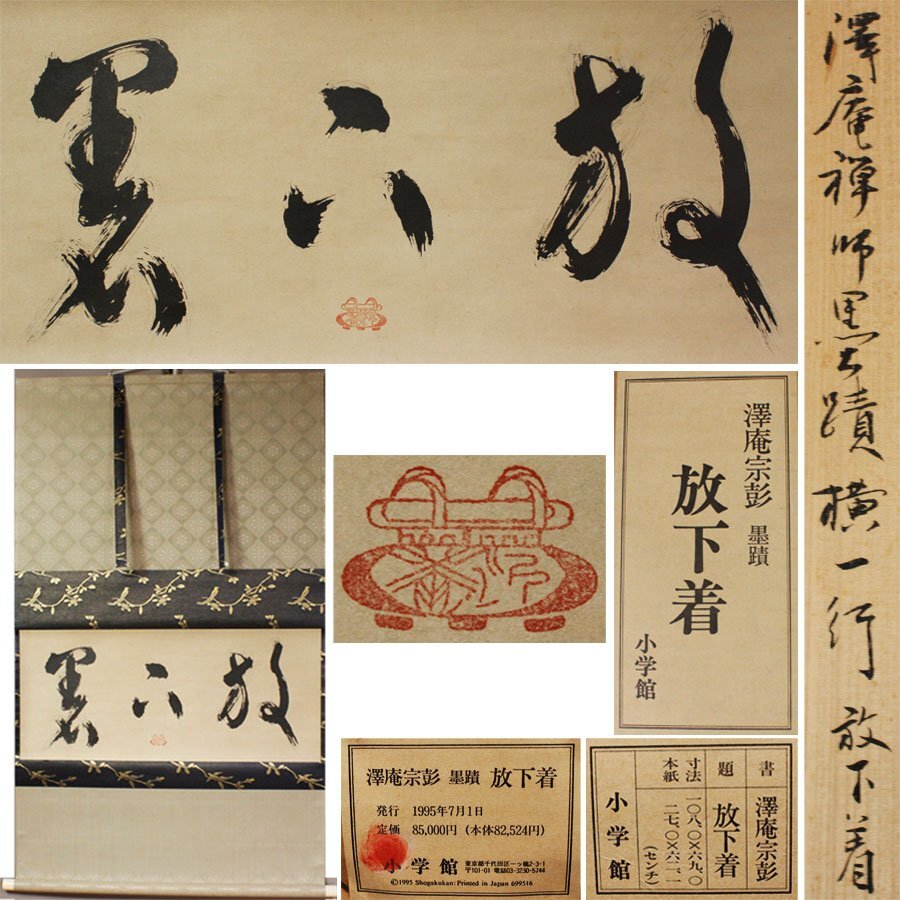 放下着
澤庵禅師墨蹟横一行 放下着
放下着
澤庵宗彭 墨蹟
放下着
小学館
澤庵宗彭 墨蹟 放下着
発行 1995年7月1日
定価 85,000円(本体82,524円)
小学館 東京都千代田区一ッ橋2-3-1
〒101-01 電話03-3230-5744
©1995 Shogakukan:Printed in Japan 699516
書 澤庵宗彭
題 放下着
寸法 一〇八.〇×六九.〇
本紙 二七.〇×六二.一
(センチ)
小学館